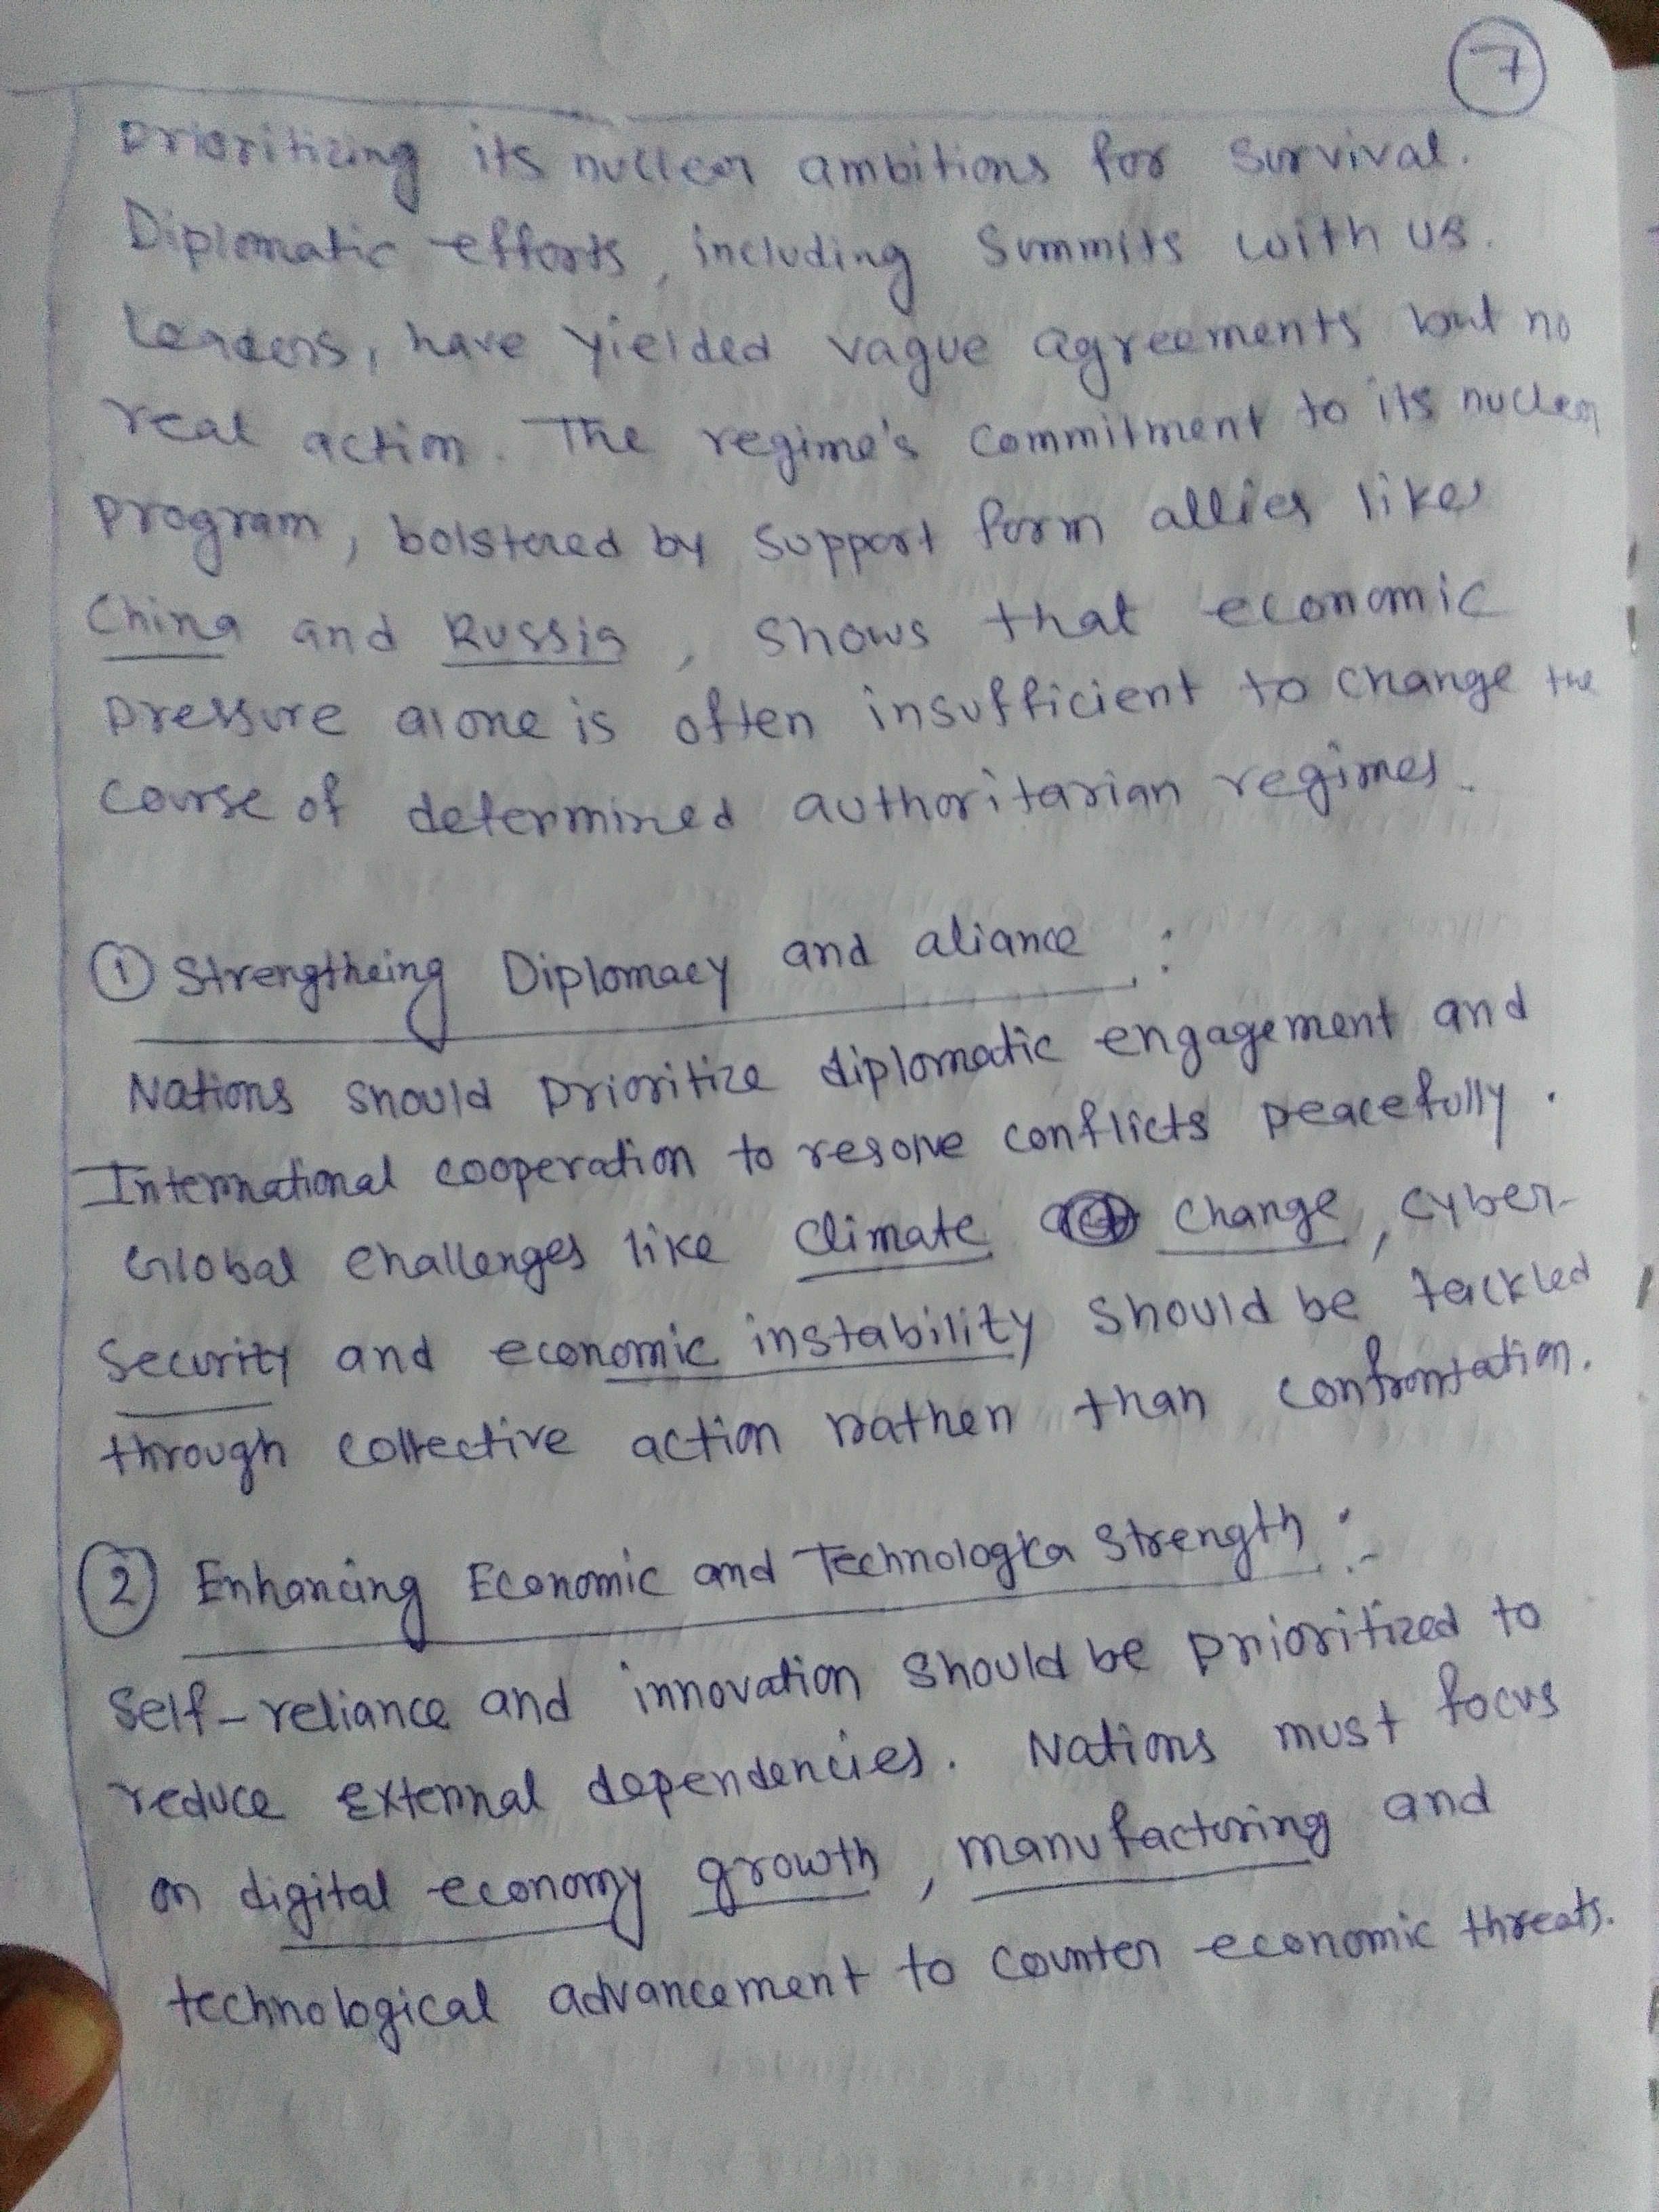 7
prioritizing its nuclear ambitions for survival.
Diplomatic efforts, including summits with US.
Leaders, have yielded vague agreements but no
real action. The regime's commitment to its nuclear
program, bolstered by support form allies like
China and Russia, shows that economic
pressure alone is often insufficient to change the
course of determined authoritarian regimes.
① Strengtheing Diplomacy and aliance :
Nations should prioritize diplomatic engagement and
International cooperation to resolve conflicts peacefully.
Global challenges like climate change, cyber-
security and economic instability should be tackled
through collective action rather than confrontation.
② Enhancing Economic and Technologica Strength :-
Self-reliance and innovation should be prioritized to
reduce external dependencies. Nations must focus
on digital economy growth, manufacturing and
technological advancement to counter economic threats.